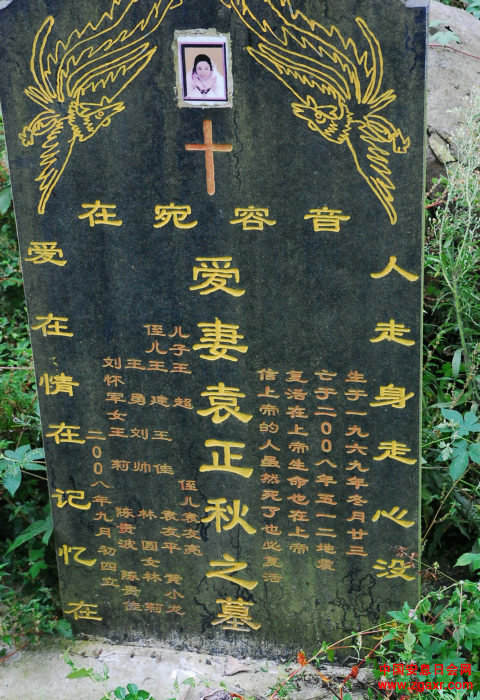 音容宛在
人走身走心没
生于一九六九年冬月廿三
亡于二00八年五一二地震
复活在上帝生命也在上帝
信上帝的人虽然死了也必复活
爱妻袁正秋之墓
儿子王超 侄儿袁友亮
侄儿王建 王佳 袁友平 黄小龙
王勇 刘帅 林园女林莉
刘怀军女王莉 陈贵波 陈贵佳
二00八年九月初四立
爱在情在记忆在